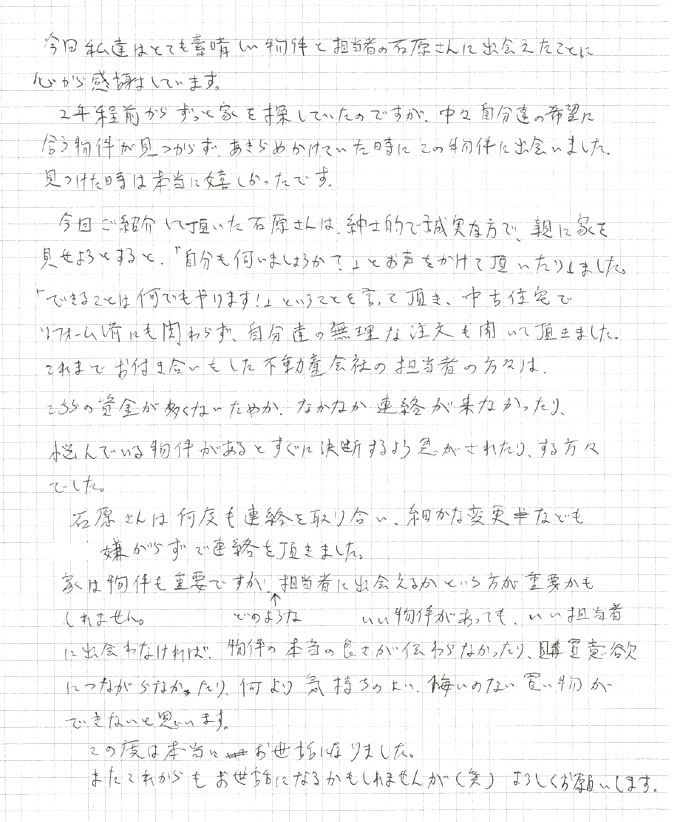 今回私達はとても素晴しい物件と担当者の石原さんに出会えたことに
心から感謝しています。
2年程前からずっと家を探していたのですが、中々自分達の希望に
合う物件が見つからず、あきらめかけていた時にこの物件に出会いました。
見つけた時は本当に嬉しかったです。
今回ご紹介して頂いた石原さんは、紳士的で誠実な方で、親に家を
見せようとすると、「自分も伺いましょうか?」とお声をかけて頂いたりしました。
「できることは何でもやります!」ということを言って頂き、中古住宅で
リフォーム済にも関わらず、自分達の無理な注文も聞いて頂きました。
これまでお付き合いをした不動産会社の担当者の方々は、
こちらの資金が多くないためか、なかなか連絡が来なかったり、
悩んでいる物件があるとすぐに決断するよう急がされたり、する方々
でした。
石原さんは何度も連絡を取り合い、細かな変更なども
嫌がらずで連絡を頂きました。
家は物件も重要ですが、担当者に出会えるかという方が重要かも
しれません。 どのような いい物件があっても、いい担当者
に出会わなければ、物件の本当の良さが伝わらなかったり、購買意欲
につながらなかったり、何より気持ちのよい、悔いのない買い物が
できないと思います。
この度は本当にお世話になりました。
またこれからもお世話になるかもしれませんが(笑)よろしくお願いします。